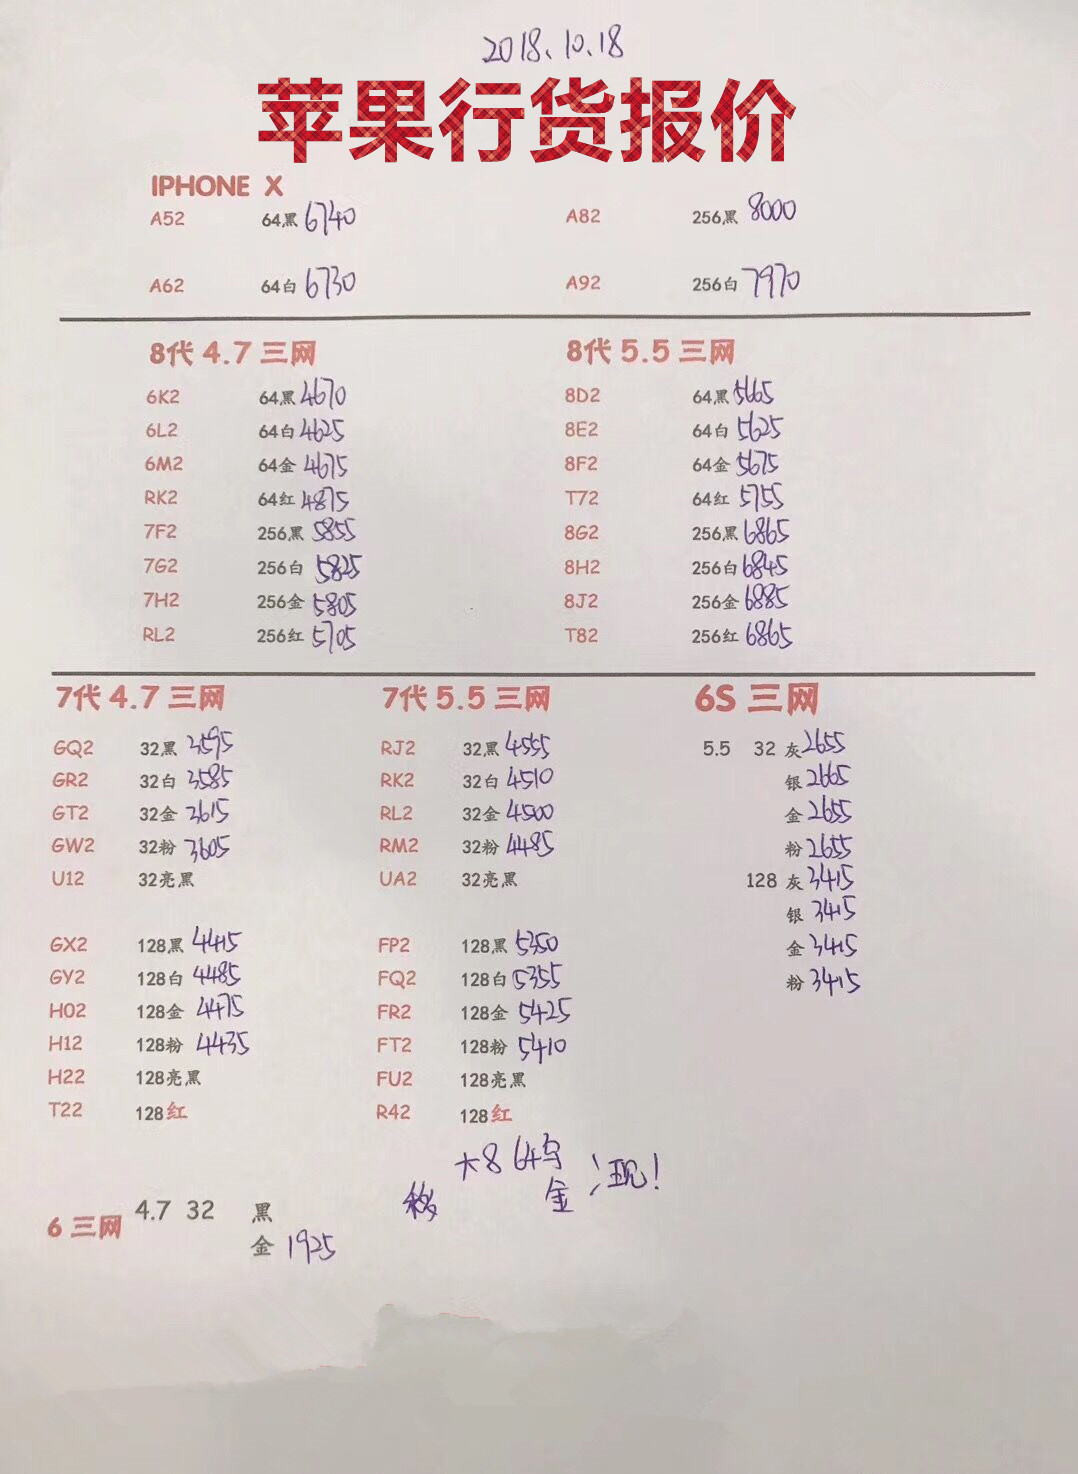 2018.10.18
苹果行货报价
IPHONE X
A52 64黑 6740 A82 256黑 8000
A62 64白 6730 A92 256白 7970
8代 4.7 三网 8代 5.5 三网
6K2 64黑 4670 8D2 64黑 5665
6L2 64白 4625 8E2 64白 5625
6M2 64金 4675 8F2 64金 5675
RK2 64红 4875 T72 64红 5755
7F2 256黑 5855 8G2 256黑 6865
7G2 256白 5825 8H2 256白 6845
7H2 256金 5805 8J2 256金 6885
RL2 256红 5705 T82 256红 6865
7代 4.7 三网 7代 5.5 三网 6S 三网
GQ2 32黑 3595 RJ2 32黑 4555 5.5 32 灰 2655
GR2 32白 3585 RK2 32白 4510 银 2665
GT2 32金 3615 RL2 32金 4500 金 2655
GW2 32粉 3605 RM2 32粉 4485 粉 2655
U12 32亮黑 UA2 32亮黑 128 灰 3415
银 3415
GX2 128黑 4415 FP2 128黑 5350 金 3415
GY2 128白 4485 FQ2 128白 5355 粉 3415
H02 128金 4475 FR2 128金 5425
H12 128粉 4435 FT2 128粉 5410
H22 128亮黑 FU2 128亮黑
T22 128红 R42 128红
大8 64
移 金 现!
6 三网 4.7 32 黑
金 1925